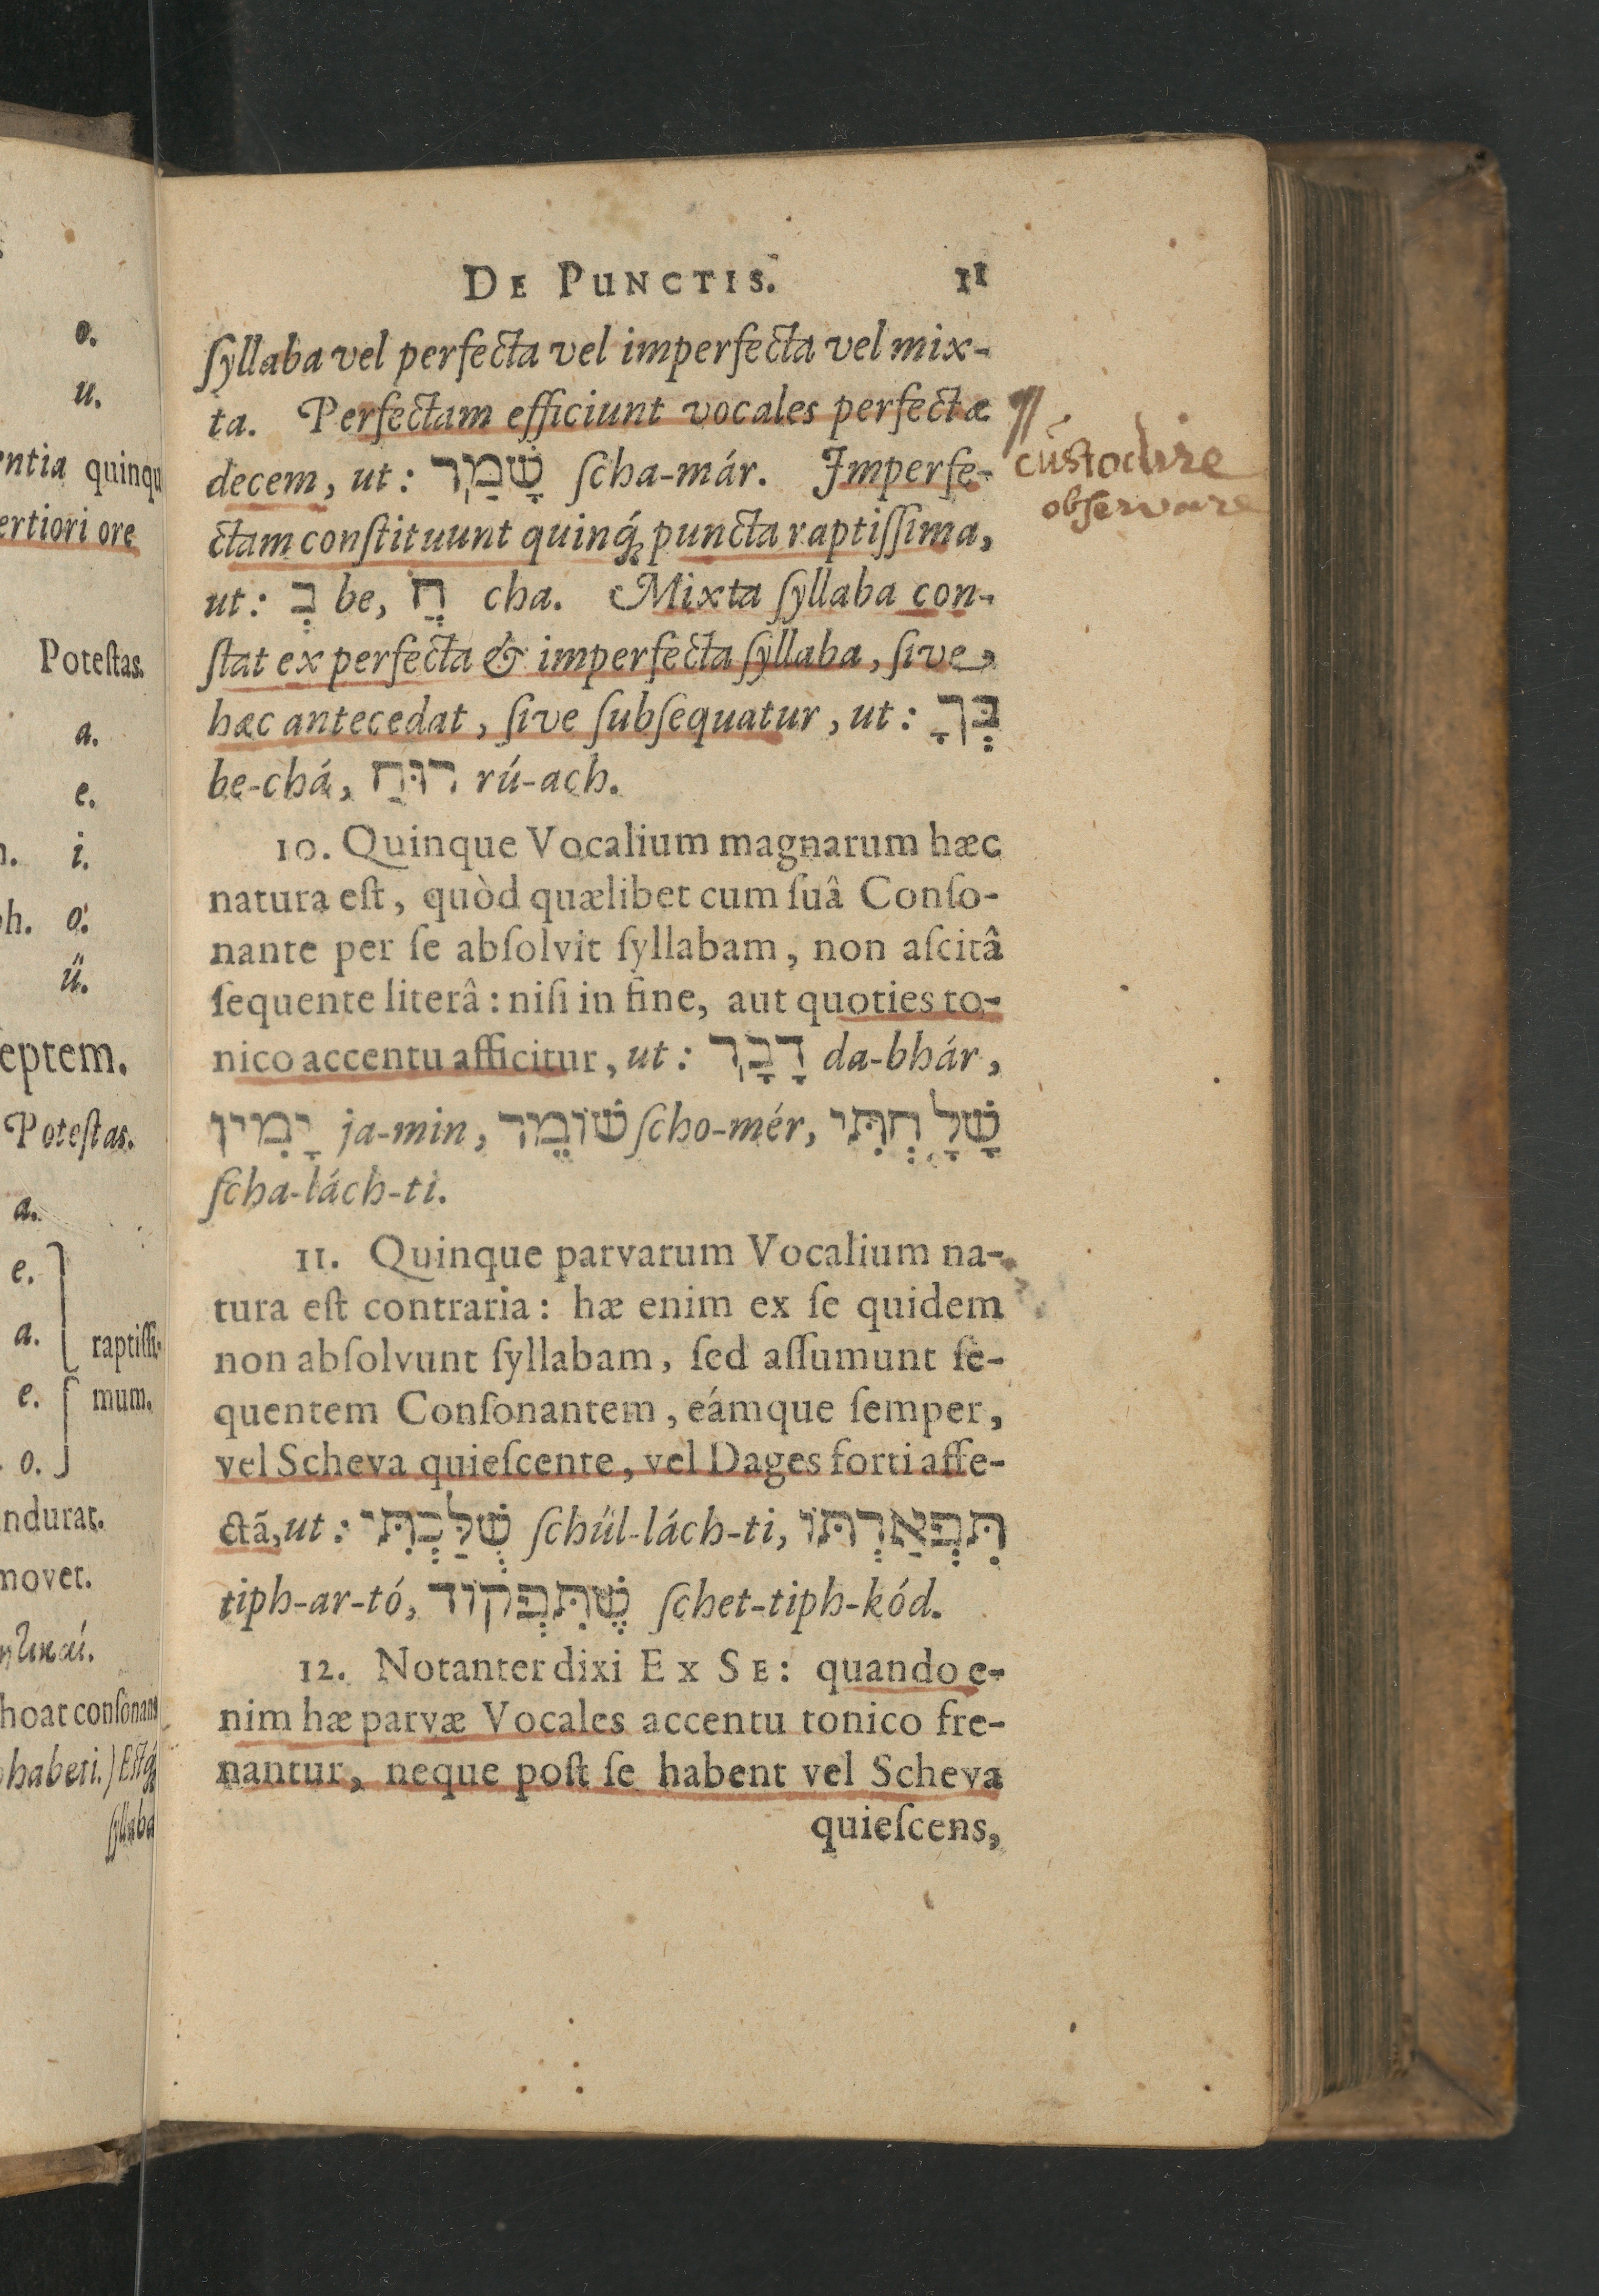 o.
u.
entia quinqu
ertiori ore
Poteſtas.
a.
e.
i.
oh. o.
ű.
eptem.
Poteſtas.
a.
e.
a.
raptiſſi-
e.
mum.
o.
ndurat.
movet.
hoat conſonans
habeti.) Eſtq́;
ſyllaba
DE PUNCTIS. 11
ſyllaba vel perfecta vel imperfecta vel mix-
ta. Perfectam efficiunt vocales perfectæ
decem, ut: שָׁמַר ſcha-már. Imperfe-
ctam conſtituunt quinq́; puncta raptiſſima,
ut: בְ be, חֱ cha. Mixta ſyllaba con-
ſtat ex perfecta & imperfecta ſyllaba, ſive
hæc antecedat, ſive ſubſequatur, ut: בְּךָ
be-chá, רוּחַ rú-ach.
10. Quinque Vocalium magnarum hæc
natura eſt, quòd quælibet cum ſuâ Conſo-
nante per ſe abſolvit ſyllabam, non aſcitâ
ſequente literâ: niſi in fine, aut quoties to-
nico accentu afficitur, ut: דָבָר da-bhár,
יָמִין ja-min, שׁוֹמֵר ſcho-mér, שָׁלָחְתִּי
ſcha-lách-ti.
11. Quinque parvarum Vocalium na-
tura eſt contraria: hæ enim ex ſe quidem
non abſolvunt ſyllabam, ſed aſſumunt ſe-
quentem Conſonantem, eámque ſemper,
vel Scheva quieſcente, vel Dages forti affe-
ctâ, ut: שֻׁלַּכְתִּי ſchül-lách-ti, תִּפְאַרְתּוֹ
tiph-ar-tó, שֶׁתִּפְקוֹד ſchet-tiph-kód.
12. Notanter dixi EX SE: quando e-
nim hæ parvæ Vocales accentu tonico fre-
nantur, neque poſt ſe habent vel Scheva
quieſcens,
cuſtodire
obſervare